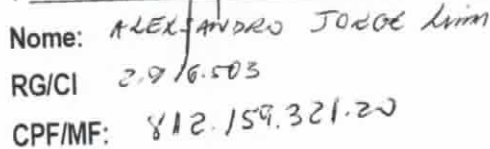 Nome: ALEXSANDRO JORGE Lima
RG/CI 2.916.503
CPF/MF: 812.159.321.20